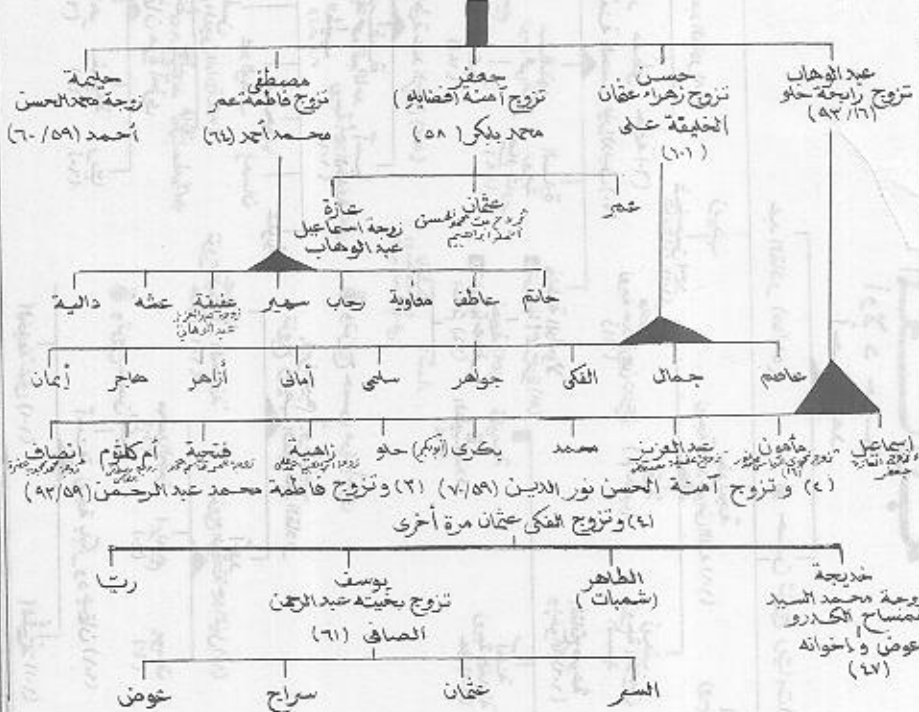 عبدالوهاب
تزوج رابحة حلو
(٩٣/١٦)
حسن
تزوج زهراء عثمان
الخليفة على
(١٠٦)
جعفر
تزوج آمنة (فضايلو)
محمد بابكر (٥٨)
مصطفى
تزوج فاطمة عمر
محمد أحمد (٦٤)
حليمة
زوجة محمد الحسن
أحمد (٦٠/٥٩)
عمر
عثمان
عازة
زوجة اسماعيل
عبد الوهاب
حاتم عاطف معاوية رحاب سهير عفيفة عشه دالية
عاصم جمال الفكى جواهر سلمى أمانى أزاهر هاجر أيمان
اسماعيل مأمون عبدالعزيز محمد بكرى (أبوبكر) حلو زاهية فتحية أم كلثوم إنصاف
(٢) وتزوج آمنة الحسن نور الدين (٧٠/٥٩) (٣) وتزوج فاطمة محمد عبد الرحمن (٩٣/٥٩)
(٤) وتزوج الفكى عثمان مرة أخرى
خديجة
زوجة محمد السيد
تمساح الكدرو
عوض وإخوانه
(٤٧)
الطاهر
(شمبات)
يوسف
تزوج بخيته عبدالرحمن
الصافى (٦١)
ريا
السر عثمان سراج عوض